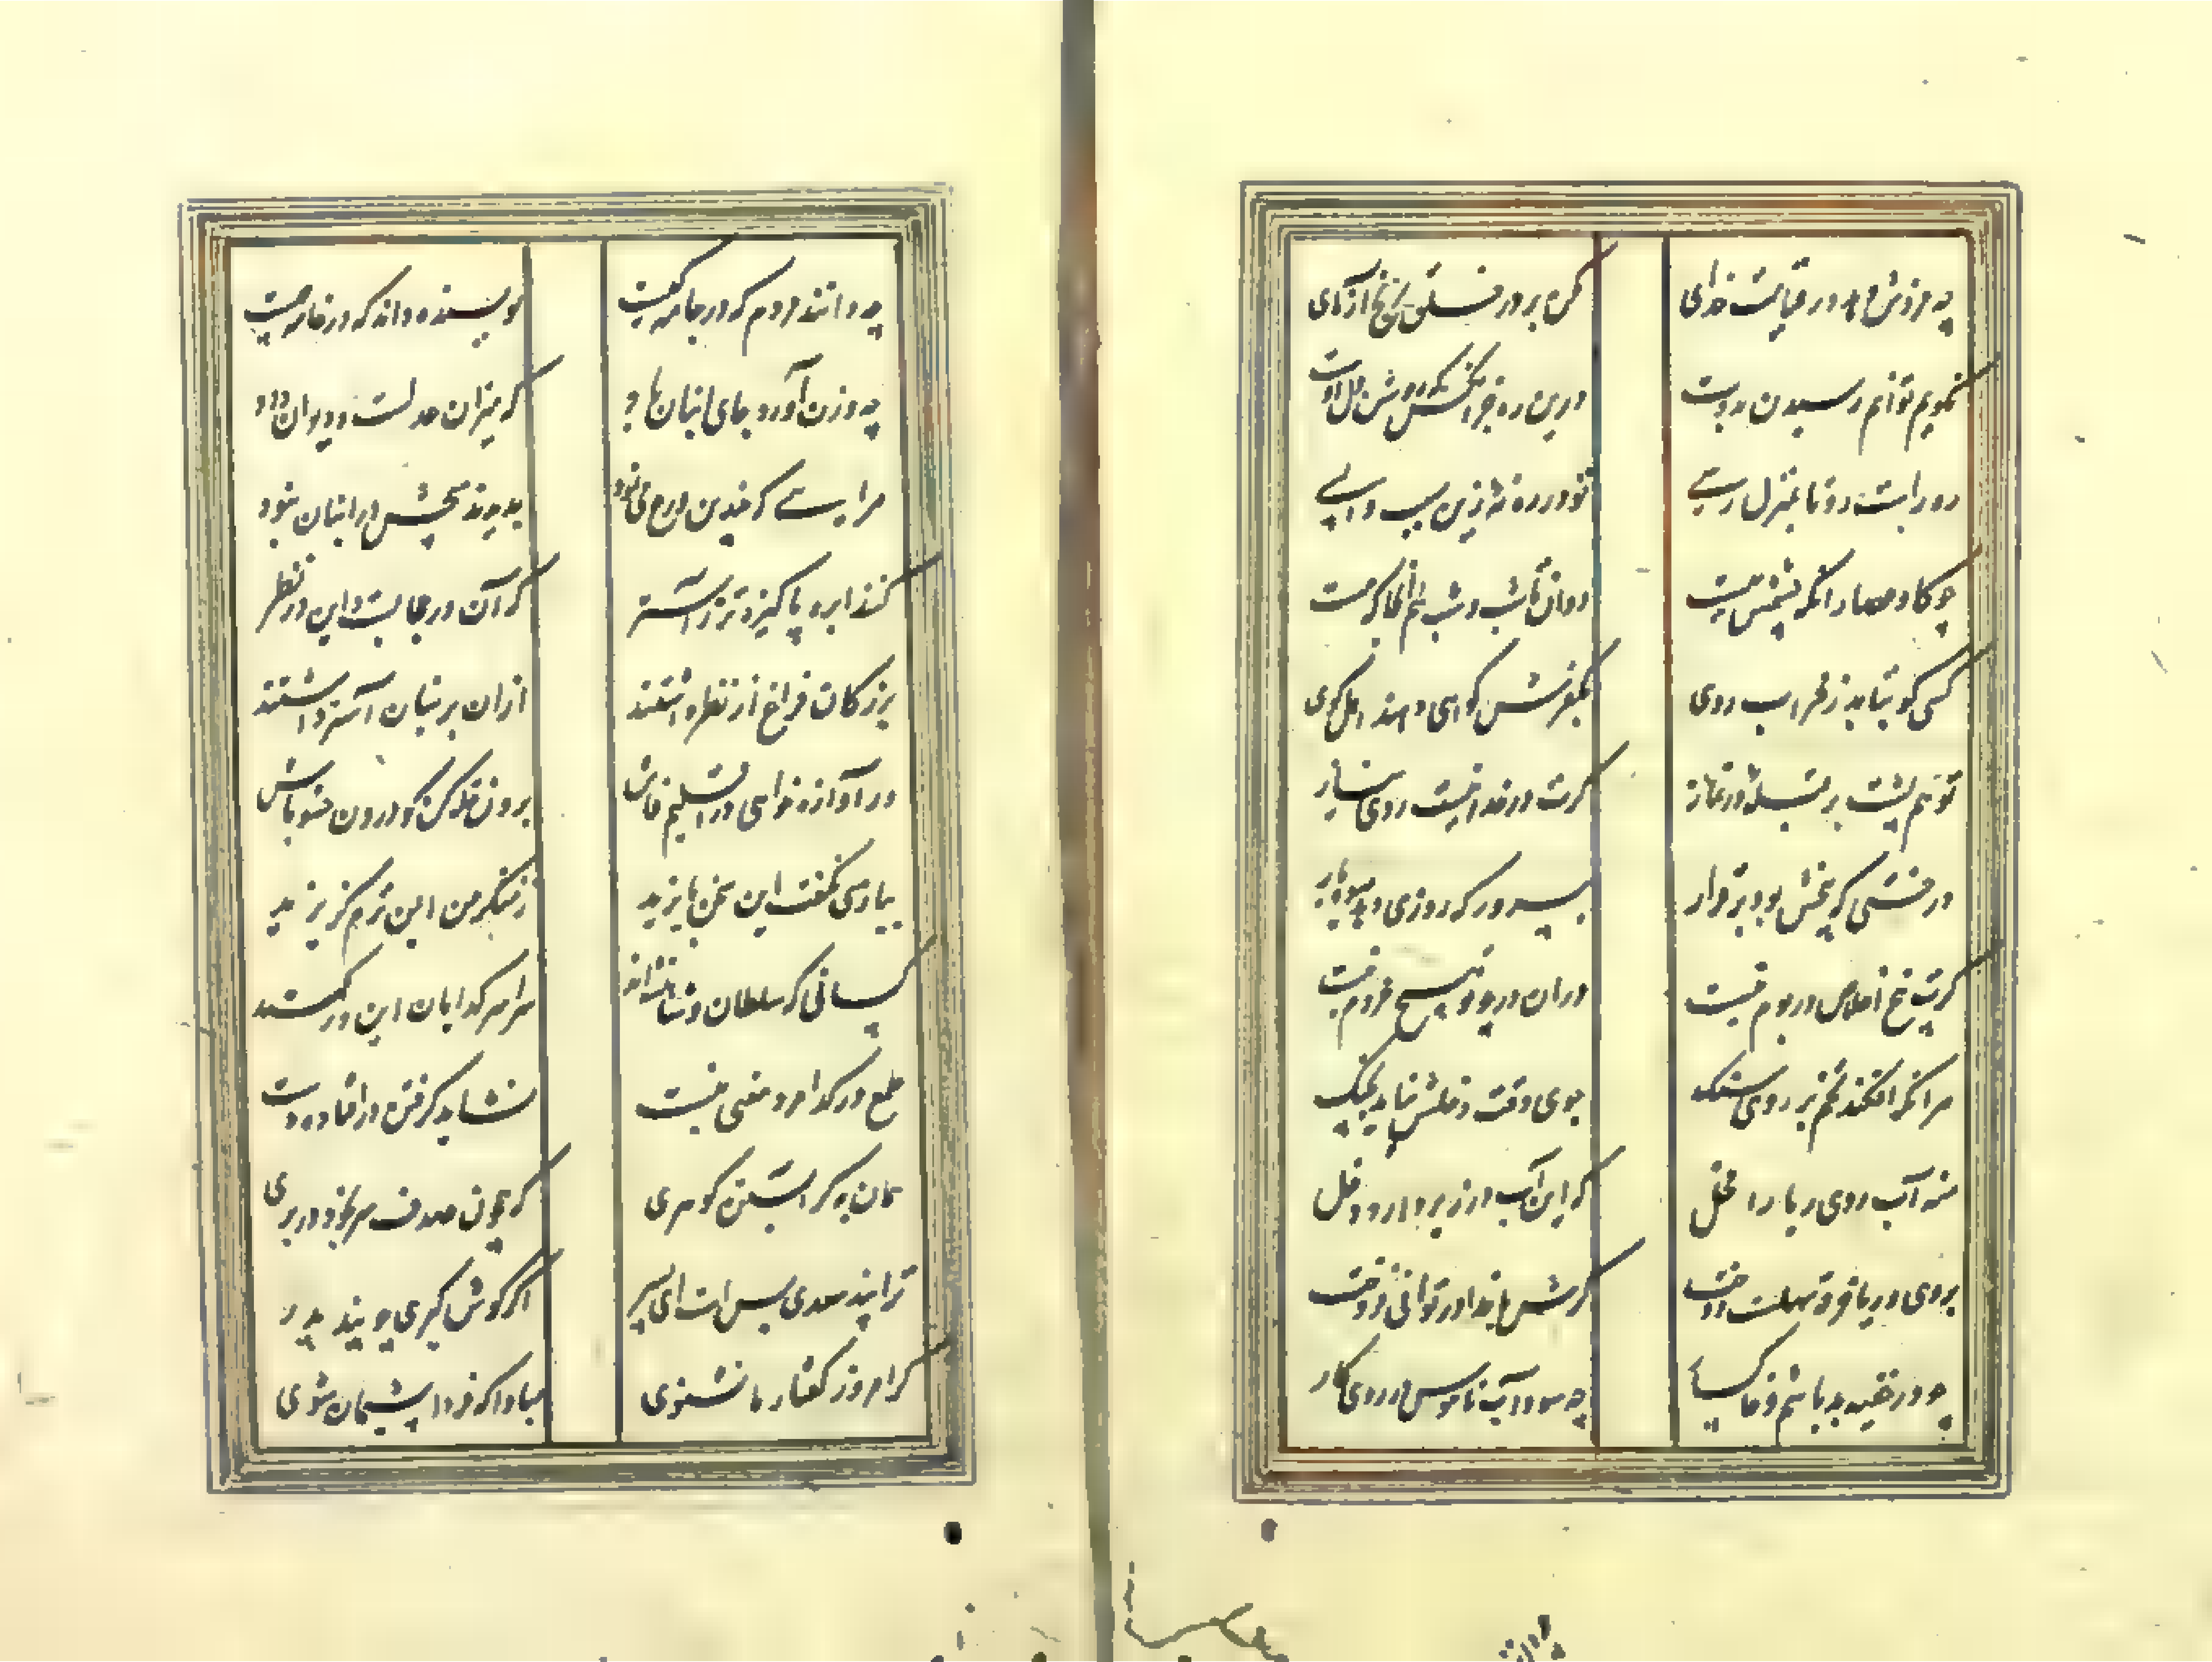 چه مزدش دهد در قیامت خدای که بر در خلق رنج آزمای
نگویم تواند رسیدن بدوست درین ره جز آنکس که رویش دل اوست
ره راست رو تا بمنزل رسے تو در ره نه زین سبب واپسے
چو گاو عصار انکه چشمش ببست دوان تا شب و شب هم آنجا که هست
کسی کو بتابد ز محراب روی بکفرش گواهی دهند اهل کوی
تو هم پشت بر قبلهٔ در نماز گرت در خدا نیست روی نیاز
درختی که بیخش بود برقرار بپرور که روزی دهد میوه بار
گرت بیخ اخلاص در بوم نیست ازان در چو تو هیچ محروم نیست
هر انکه افکند تخم بر روی سنک جوی وقت دخلش نیاید بچنک
منه آب روی ریا را محل که این آب در زیر دارد وحل
بروی و ریا خرقه سهلست دوخت گرش با خدا در توانی فروخت
چو در خفیه بد باشم و خاکسار چه سود آب ناموس بر روی کار
چه دانند مردم که در جامه کیست نویسنده داند که در نامه چیست
چه وزن آورد جای انبان باد که میزان عدلست و دیوان داد
مرایے که چندین ورع می نمود بدیدند هیچش در انبان نبود
کنند ابره پاکیزه تر ز آستر که آن در حجابست و این در نظر
بزرگان فراغ از نظر داشتند ازان پرنیان آستر داشتند
ور آوازه خواهی در اقلیم فاش برون حله کن گو درون حشو باش
ببازی نگفت این سخن بایزید که از منکر من ایمن ترم کز مرید
کسانی که سلطان و شاهنشهاند سراسر گدایان این درگهند
طمع در گدا مرد معنی نبست نشاید گرفتن در افتاده دست
همان به گر آبستن گوهری که همچون صدف سر بخود در بری
ترا پند سعدی بس است ای پسر اگر گوش گیری چو پند پدر
گر امروز گفتار ما نشنوی مبادا که فردا پشیمان شوی